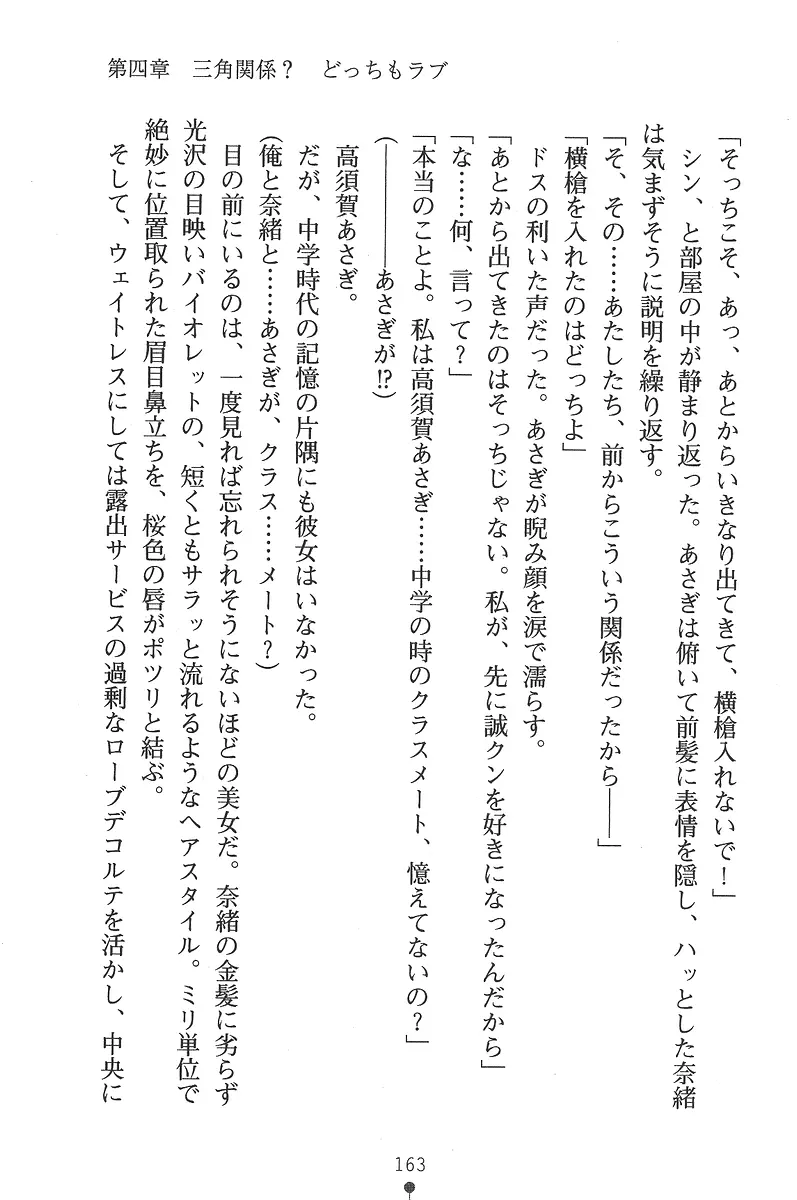 第四章　三角関係？　どっちもラブ
「そっちこそ、あっ、あとからいきなり出てきて、横槍入れないで！」
　シン、と部屋の中が静まり返った。あさぎは俯いて前髪に表情を隠し、ハッとした奈緒
は気まずそうに説明を繰り返す。
「そ、その……あたしたち、前からこういう関係だったから――」
「横槍を入れたのはどっちよ」
　ドスの利いた声だった。あさぎが睨み顔を涙で濡らす。
「あとから出てきたのはそっちじゃない。私が、先に誠クンを好きになったんだから」
「な……何、言って？」
「本当のことよ。私は高須賀あさぎ……中学の時のクラスメート、憶えてないの？」
（――――あさぎが!?）
　高須賀あさぎ。
　だが、中学時代の記憶の片隅にも彼女はいなかった。
（俺と奈緒と……あさぎが、クラス……メート？）
　目の前にいるのは、一度見れば忘れられそうにないほどの美女だ。奈緒の金髪に劣らず
光沢の目映いバイオレットの、短くともサラッと流れるようなヘアスタイル。ミリ単位で
絶妙に位置取られた眉目鼻立ちを、桜色の唇がポツリと結ぶ。
　そして、ウェイトレスにしては露出サービスの過剰なローブデコルテを活かし、中央に
163